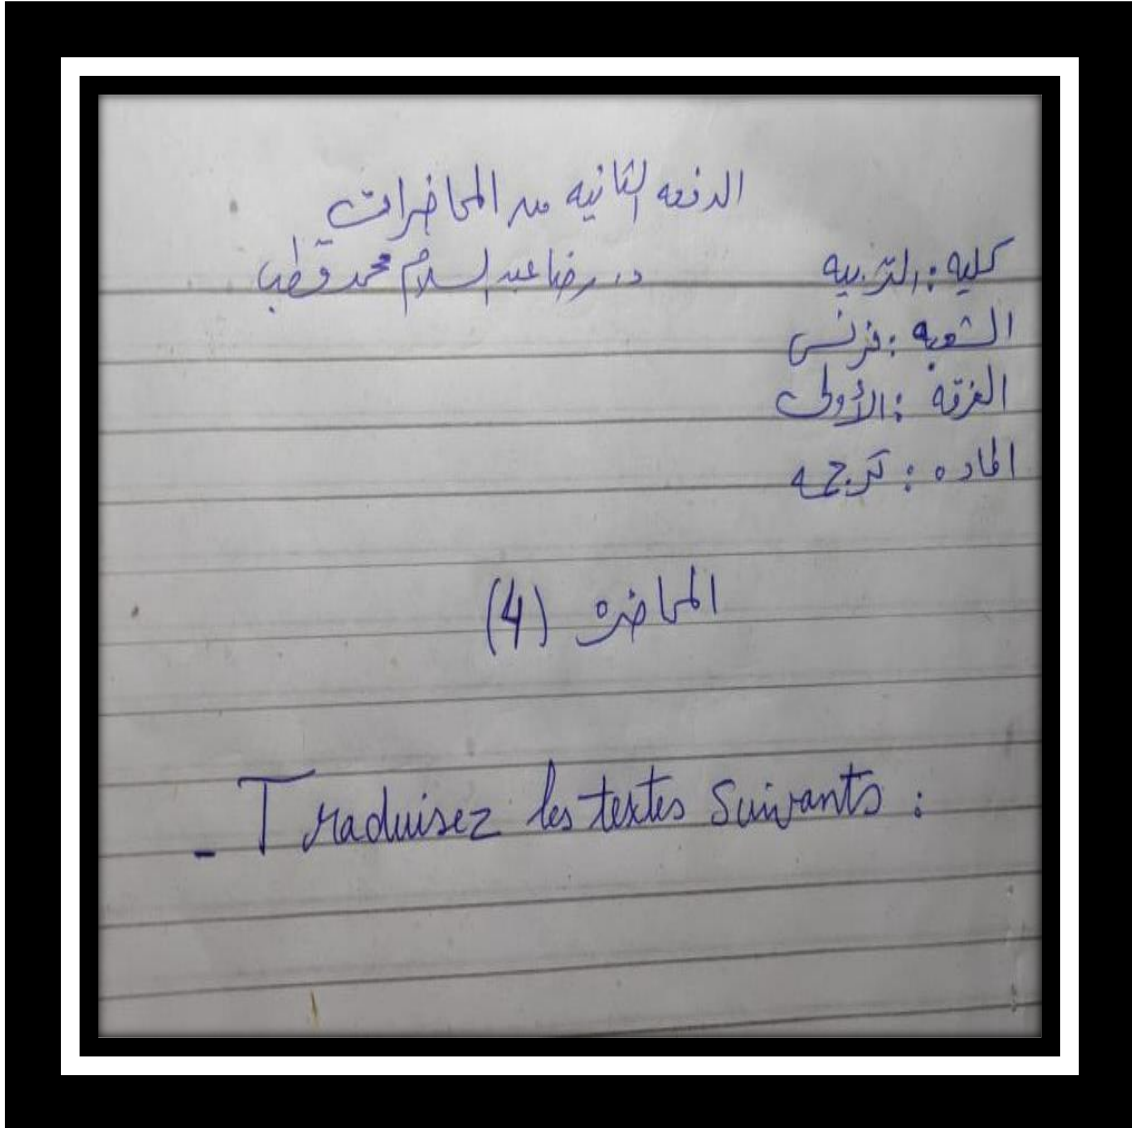 الدفعه الثانيه من المحاضرات
كليه : التربيه
د. رضا عبد السلام محمد قطب
الشعبه : فرنسى
الفرقه : الأولى
الماده : ترجمه
المحاضره (4)
- Traduisez les textes suivants :